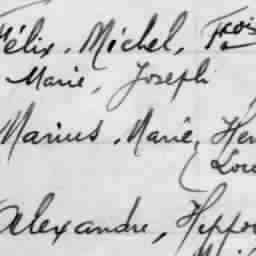 Félix, Michel, Frois
Marie, Joseph
Marius, Marie, Hen
(Lou
Alexandre, Hippo